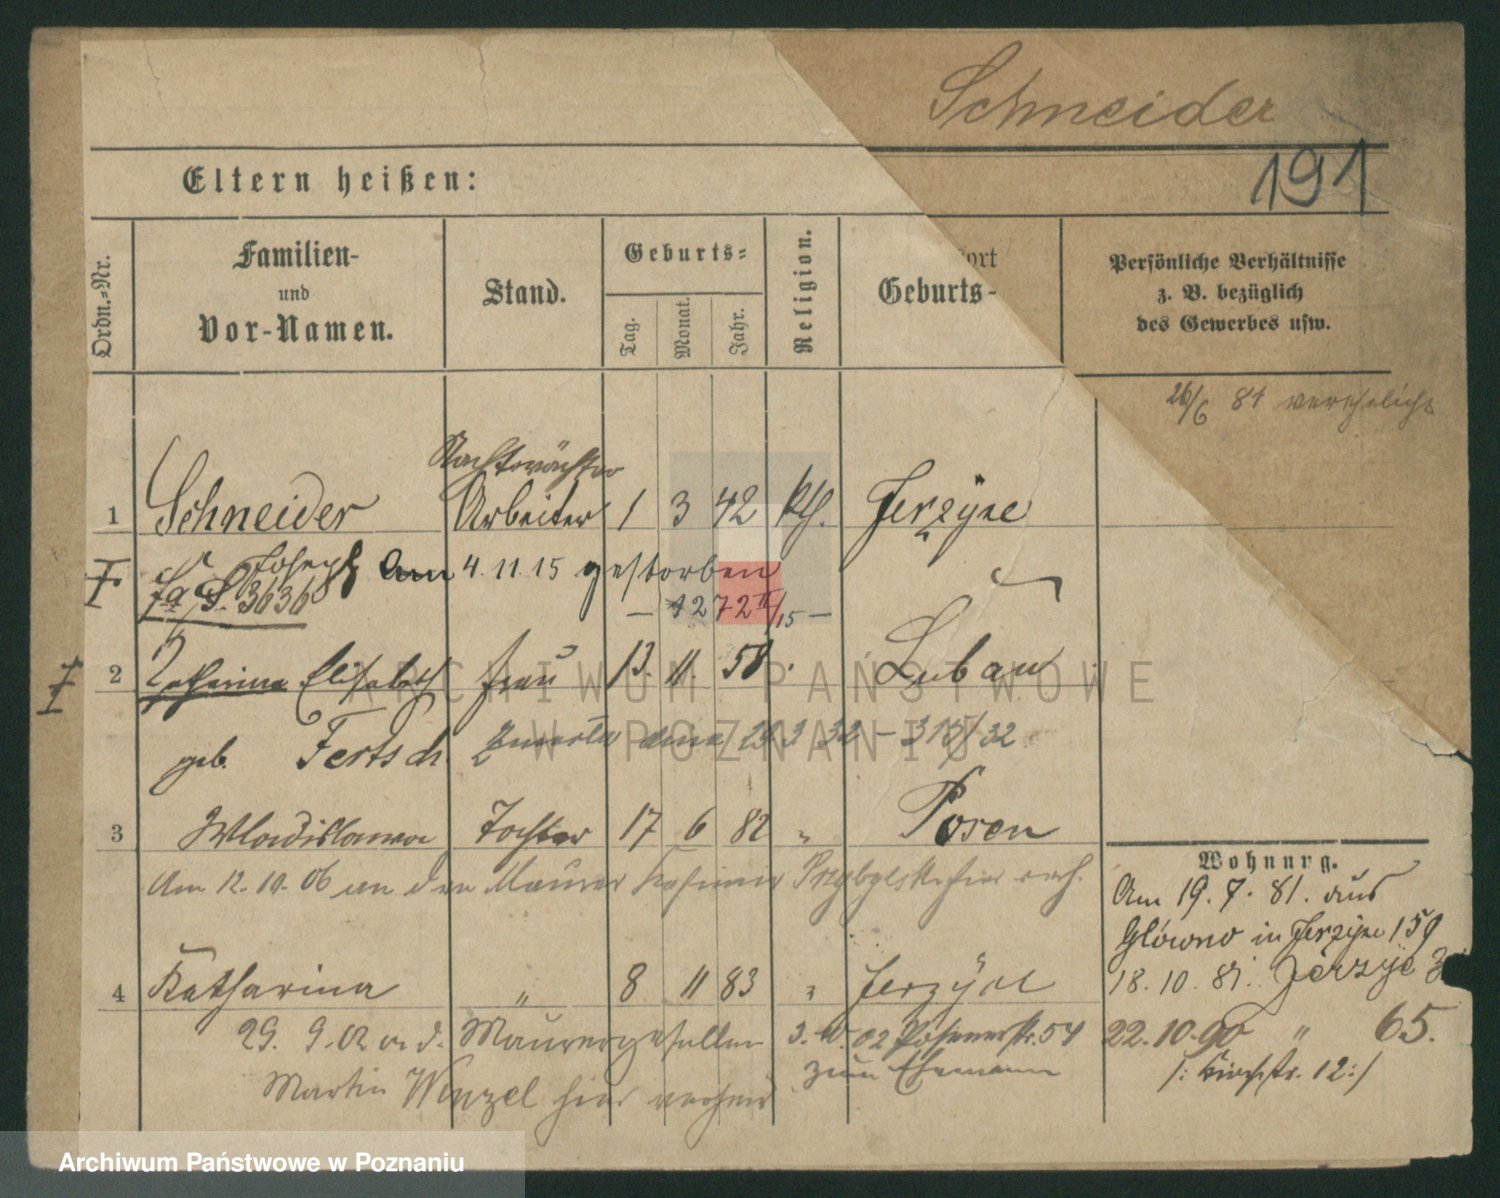 Schneider
191
Eltern heißen:
Ordn.-Nr.
Familien-
und
Vor-Namen.
Stand.
Geburts-
Tag.
Monat.
Jahr.
Religion.
ort
Geburts-
Persönliche Verhältnisse
z. B. bezüglich
des Gewerbes usw.
26/6 81 verehelicht
Nachtwächter
1 Schneider Arbeiter 1 3 42 kth. Jerzyce
Joseph am 4. 11. 15 gestorben
36368
2 Catharina Elisabeth Frau 13. 11. 58. Luban
geb. Fertsch. Zmarła dnia 29 3 32 - 315/32
3 Wladislawa Tochter 17 6 82 " Posen
Am 12. 10. 06 an den Maurer Kasimir verh.
4 Katharina " 8 11 83 " Jerzyce
29. 9. 02 a. d. Maurergesellen 3. 10. 02 Posenerstr. 54
Martin Wenzel hier verheir zum Ehemann
Wohnung.
Am 19. 7. 81. aus
Glówno in Jerzyce 159
18. 10. 81. Jerzyce
22. 10. 90 " 65.
/: Kirchstr. 12 :/
ARCHIWUM PAŃSTWOWE
W POZNANIU
Archiwum Państwowe w Poznaniu